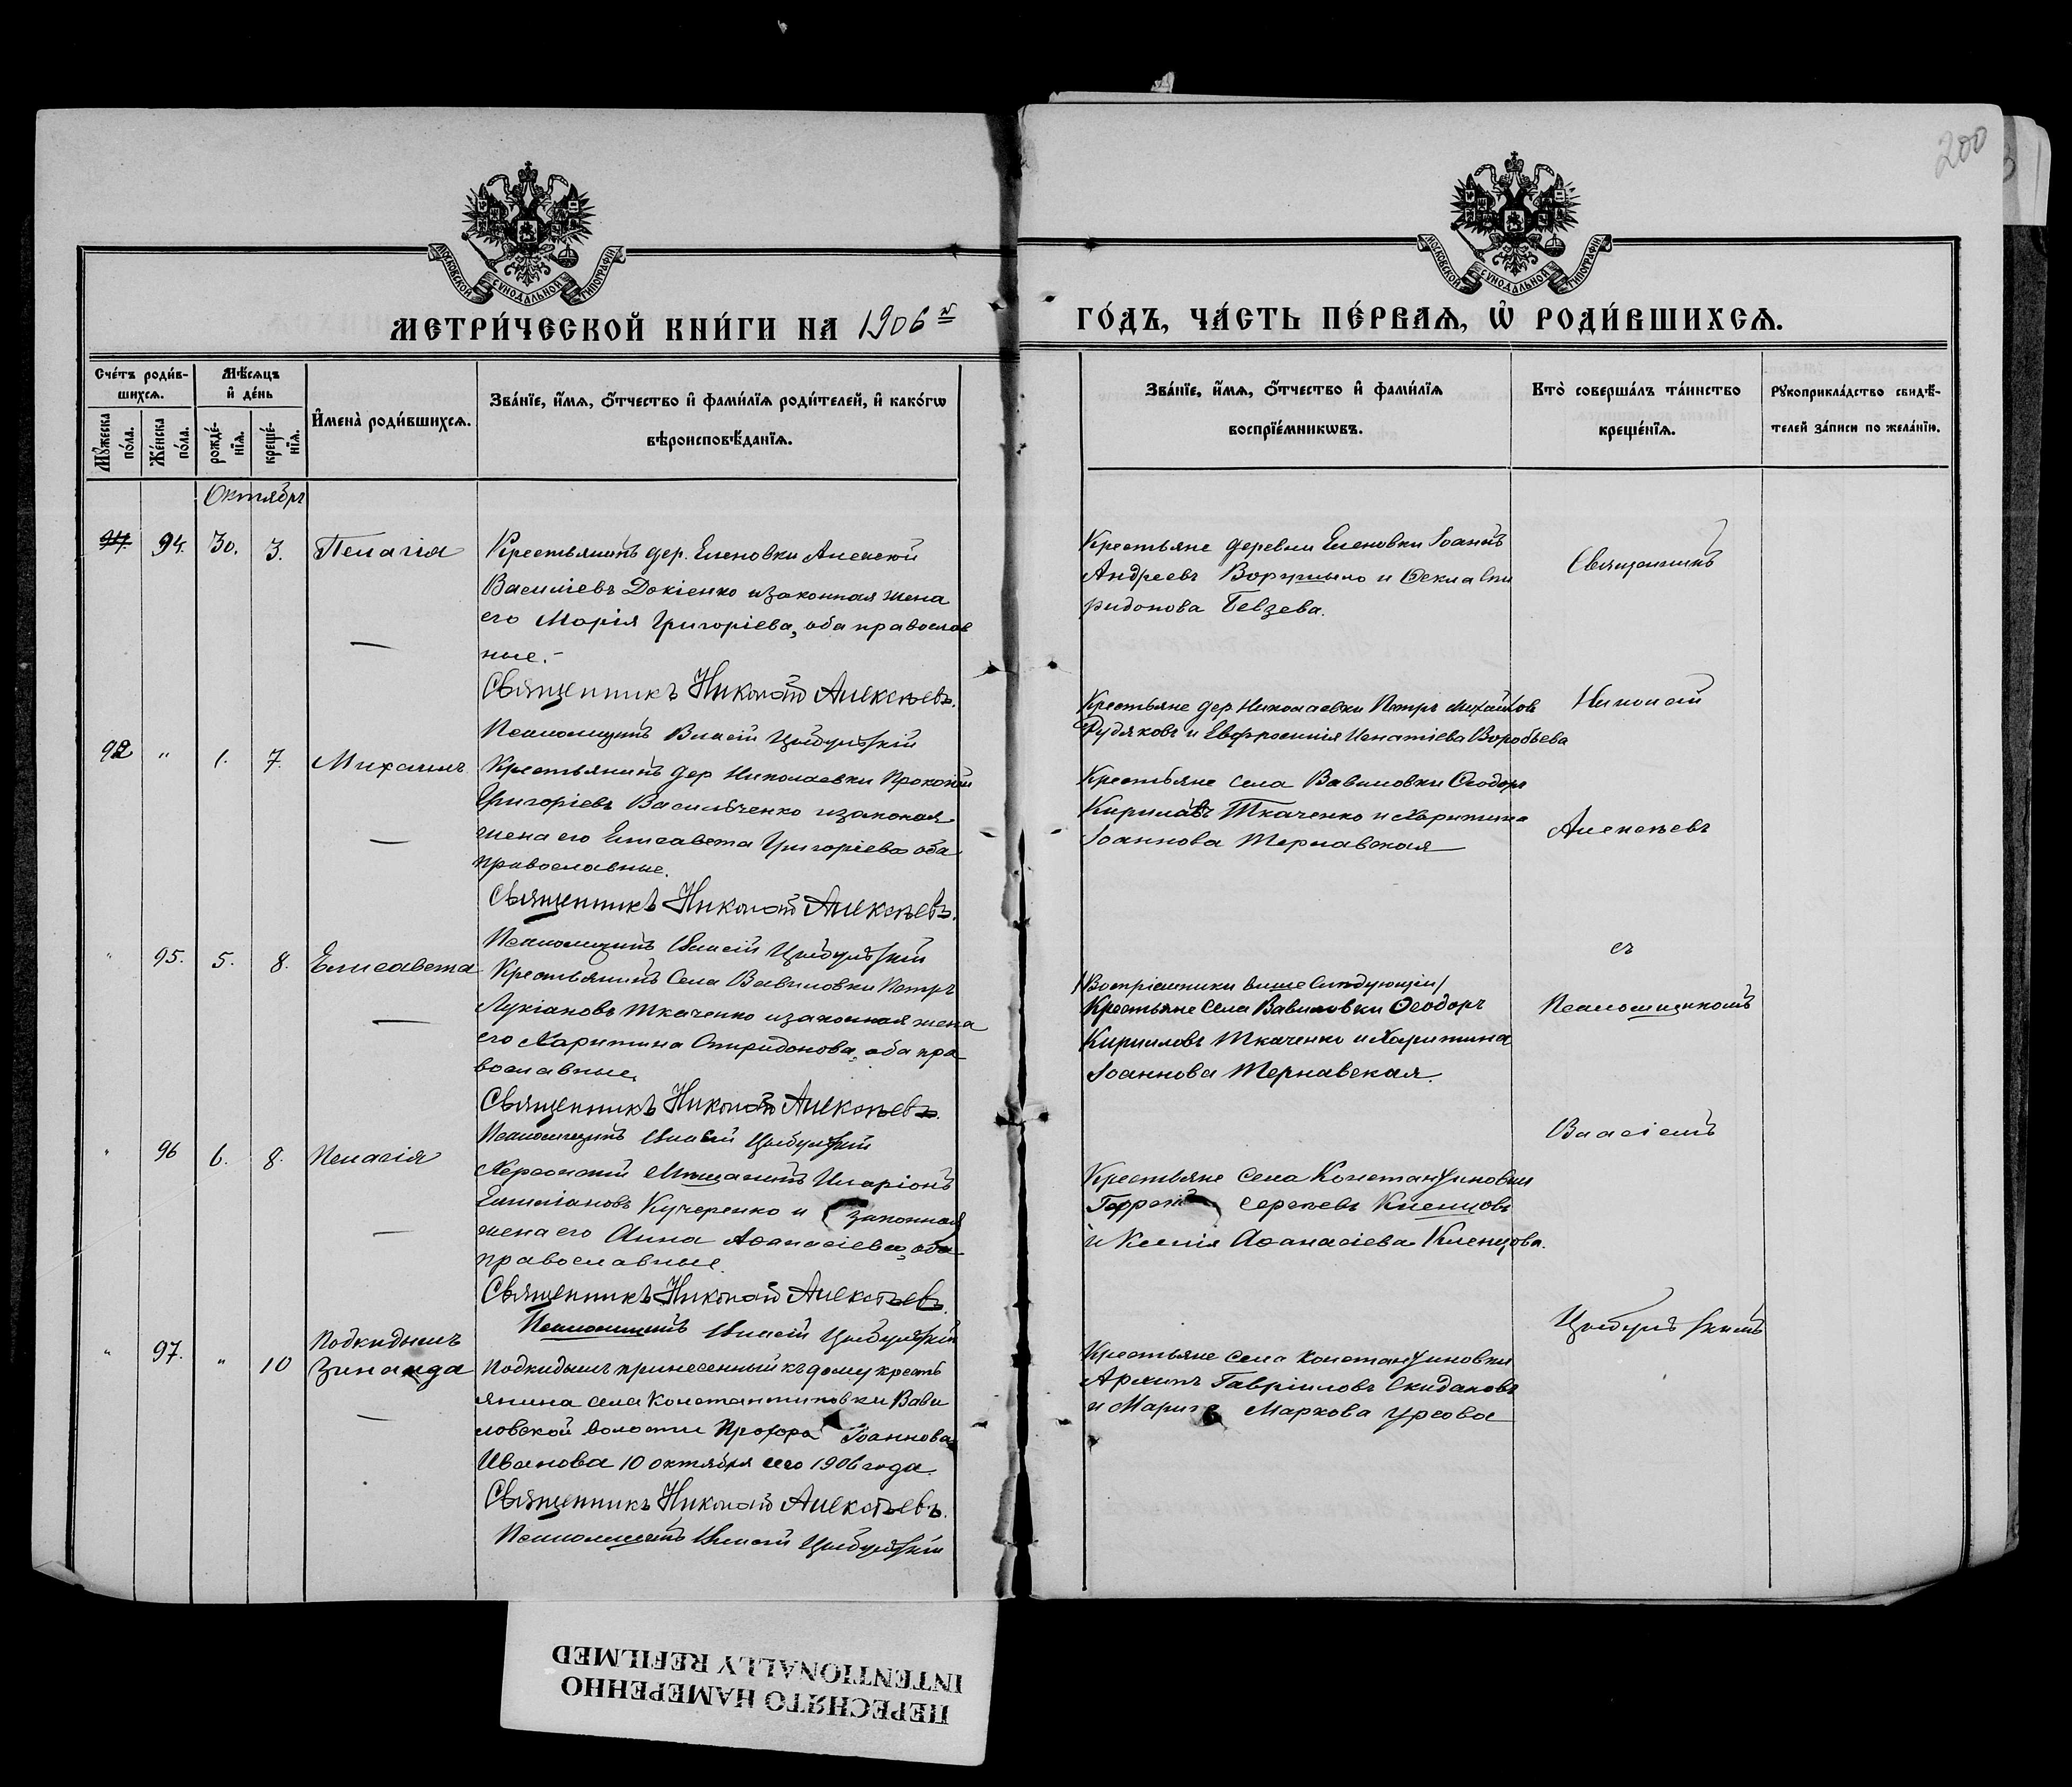 200
МОСКОВСКОЙ СУНОДАЛЬНОЙ ТИПОГРАФІИ
МОСКОВСКОЙ СУНОДАЛЬНОЙ ТИПОГРАФІИ
МЕТРИ́ЧЕСКОЙ КНИ́ГИ НА 1906й
ГО́ДЪ, ЧА́СТЬ ПЕ́РВАѦ, Ѡ҆ РОДИ́ВШИХСѦ.
Сче́тъ роди́в-
шихсѧ.
Мѣ́сѧцъ
и҆ де́нь
Мꙋ́жеска
по́ла.
Же́нска
по́ла.
рожде́-
нїѧ.
креще́-
нїѧ.
И҆мена̀ роди́вшихсѧ.
Зва́нїе, и҆́мѧ, ѻ҆́тчество и҆ фами́лїѧ роди́телей, и҆ како́гѡ
вѣроисповѣ́данїѧ.
Зва́нїе, и҆́мѧ, ѻ҆́тчество и҆ фами́лїѧ
воспрїе́мникѡвъ.
Кто̀ соверша́лъ та́инство
креще́нїѧ.
Рꙋкоприкла́дство свидѣ́-
телей за́писи по жела́нїю.
Октябрь
94. 30. 3. Пелагія
Крестьянинъ дер. Еленовки Алексѣй
Василіевъ Докіенко и законная жена
его Марія Григоріева, оба православ
ные.-
Священникъ Николай Алексѣевъ.
Псаломщикъ Власій Цыбульскій
Крестьяне деревни Еленовки Іоаннъ
Андреевъ Ворушыло и Ѳекла Спи
ридонова Бевзева.
92 " 1. 7. Михаилъ
Крестьянинъ дер Николаевки Прокопій
Григоріевъ Васильченко и законая
жена его Елисавета Григоріева оба
православные.
Священникъ Николай Алексѣевъ.
Псаломщикъ Власій Цыбульскій
Крестьяне дер Николаевки Петръ Михайлов
Рудяковъ и Евфросинія Игнатіева Воробьева
Крестьяне села Вавиловки Ѳеодоръ
Кириловъ Ткаченко и Харитина
Іоаннова Тернавская
" 95. 5. 8. Елисавета
Крестьянинъ Села Вавиловки Петръ
Лукіановъ Ткаченко и законная жена
его Харитина Спиридонова, оба пра
вославные.
Священникъ Николай Алексѣевъ.
Псаломщикъ Власій Цыбульскій
/Воспріемники выше Слѣдующіи/
Крестьяне Села Вавиловки Ѳеодоръ
Кирилловъ Ткаченко и Харитина
Іоаннова Тернавская.
" 96 6. 8. Пелагія
Херсонскій Мѣщанинъ Иларіонъ
Емиліановъ Кучеренко и законная
жена его Анна Аѳанасіева, оба
православные.
Священникъ Николай Алексѣевъ.
Псаломщикъ Власій Цыбульскій
Крестьяне села Константиновки
Сергѣевъ Кленцовъ
и Ксенія Аѳанасіева Кленцова.
" 97. " 10 Подкидышъ
Зинаида
Подкидышъ принесенный къ дому кресть
янина села Константиновки Вави
ловской волости Прохора Іоаннова
Иванова 10 октября сего 1906 года.
Священникъ Николай Алексѣевъ.
Псаломщикъ Власій Цыбульскій
Крестьяне села Константиновки
Архипъ Гавріиловъ Скидановъ
и Марія Маркова Урсова
Священникъ
Николай
Алексѣевъ
съ
Псаломщикомъ
Власіемъ
Цыбульскимъ
ПЕРЕСНЯТО НАМЕРЕННО
INTENTIONALLY REFILMED